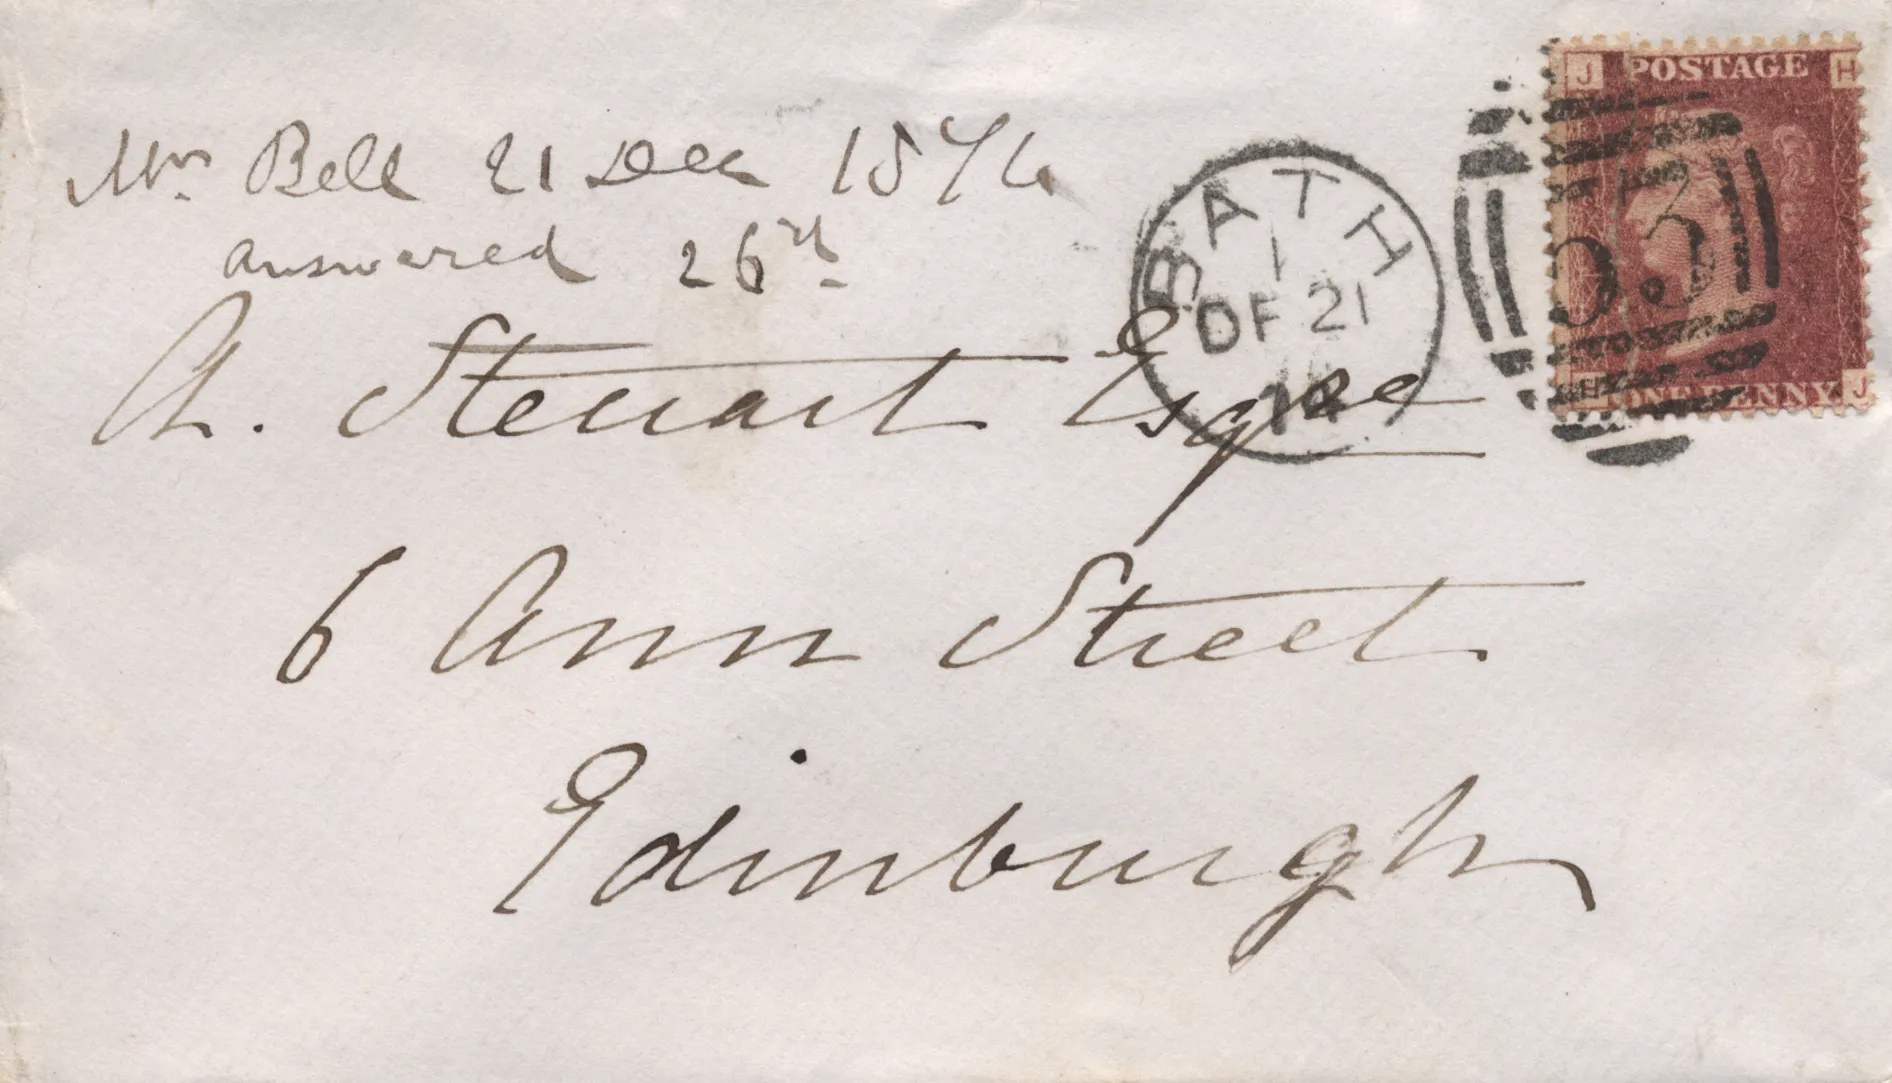 Mrs. Bell 21 Dec 1874.
answered 26th
Ch. Steuart Esqre
6 Ann Street
Edinburgh
BATH
1
DE 21
74
J POSTAGE H
53
ONE PENNY J